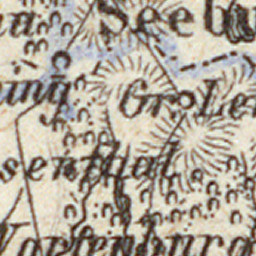 na Seebu
ung Gr. Le
senthal
Wartenburg